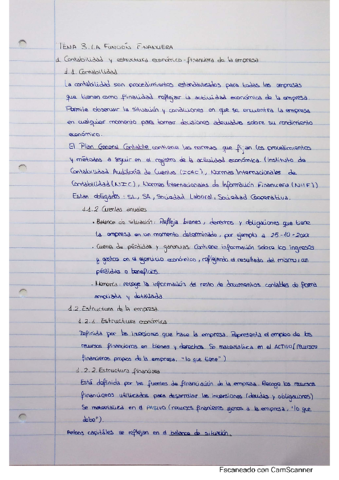 TEMA 3. LA FUNCIÓN FINANCIERA
1. Contabilidad y estructura económico-financiera de la empresa.
1.1. Contabilidad
La contabilidad son procedimientos estandarizados para todas las empresas
que tienen como finalidad reflejar la actividad económica de la empresa.
Permite observar la situación y condiciones en que se encuentra la empresa
en cualquier momento para tomar decisiones adecuadas sobre su rendimiento
económico.
El Plan General Contable contiene las normas que fijan los procedimientos
y métodos a seguir en el registro de la actividad económica. (Instituto de
Contabilidad Auditoría de Cuentas (ICAC), Normas Internacionales de
Contabilidad (NIC), Normas Internacionales de Información Financiera (NIIF)).
Están obligadas: SL, SA, Sociedad Laboral, Sociedad Cooperativa.
1.1.2 Cuentas anuales
- Balance de situación: Refleja bienes, derechos y obligaciones que tiene
la empresa en un momento determinado, por ejemplo a 25-10-
- Cuenta de pérdidas y ganancias: Contiene información sobre los ingresos
y gastos en el ejercicio económico, reflejando el resultado del mismo, sus
pérdidas o beneficios.
- Memoria: recoge la información del resto de documentos contables de forma
ampliada y detallada
1.2 Estructura de la empresa
1.2.1. Estructura económica
Definida por las inversiones que hace la empresa. Representa el empleo de los
recursos financieros en bienes y derechos. Se materializa en el ACTIVO (recursos
financieros propios de la empresa. "lo que tiene")
1.2.2 Estructura financiera
Está definida por las fuentes de financiación de la empresa. Recoge los recursos
financieros utilizados para desarrollar las inversiones (deudas y obligaciones)
Se materializa en el PASIVO (recursos financieros ajenos a la empresa. "lo que
debo").
Ambos capitales se reflejan en el balance de situación.
Escaneado con CamScanner